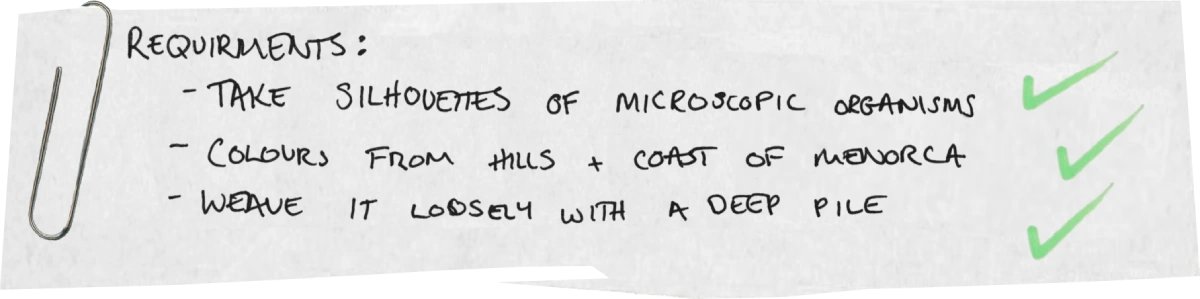 REQUIRMENTS:
- TAKE SILHOUETTES OF MICROSCOPIC ORGANISMS
- COLOURS FROM HILLS + COAST OF MENORCA
- WEAVE IT LOOSELY WITH A DEEP PILE